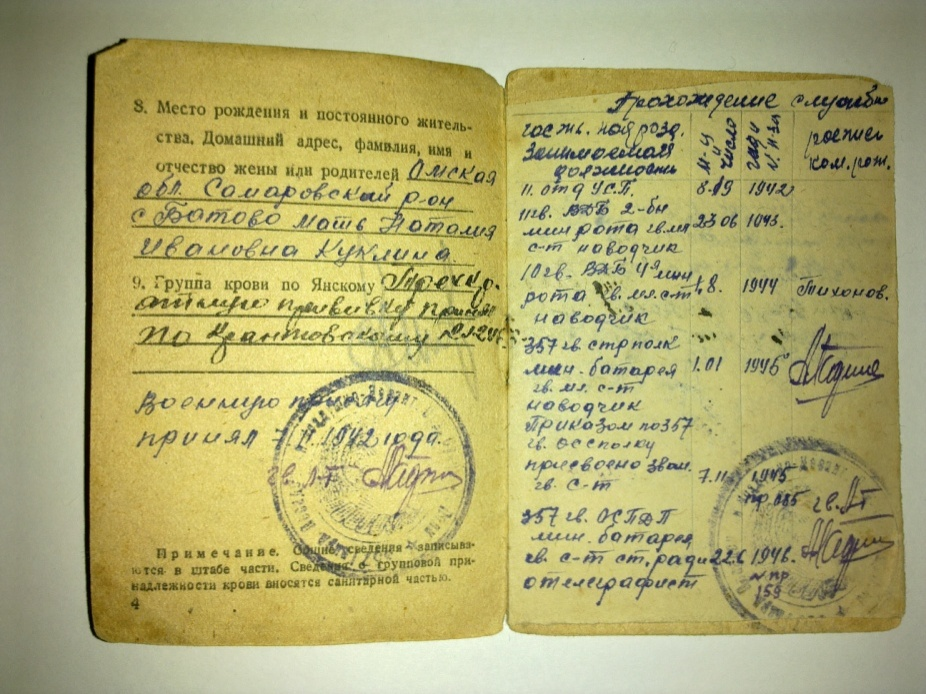 8. Место рождения и постоянного житель-
ства. Домашний адрес, фамилия, имя и
отчество жены или родителей Омская
обл. Самаровский р-он
с Батово мать Наталия
Ивановна Куклина.
9. Группа крови по Янскому
прививку
по
Военную
принял 7 1942 года.
гв. л-т
Примечание. Общие сведения записыва-
ются в штабе части. Сведения о групповой при-
надлежности крови вносятся санитарной частью.
4
Прохождение службы
часть. подразд.
Занимаемая
должность
число
роспись
ком. рот.
11. отд УСП 8.09 1942
11 гв. ВДБ 2-бн
мин рота гв. мл 23 06 1943.
с-т наводчик
10 гв. ВДБ 4й мин
рота гв. мл. с-т 1.8. 1944 Тихонов.
наводчик
357 гв стр полк
мин. батарея 1.01 1945
гв. мл. с-т
наводчик
Приказом по 357
гв осспполку
присвоено зван.
гв. с-т 7.11 1945
пр. 085 гв. л-т
357 гв. ОСПДП
мин. батарея
гв. с-т ст. ради 22.6 1946.
отелеграфист № пр
159